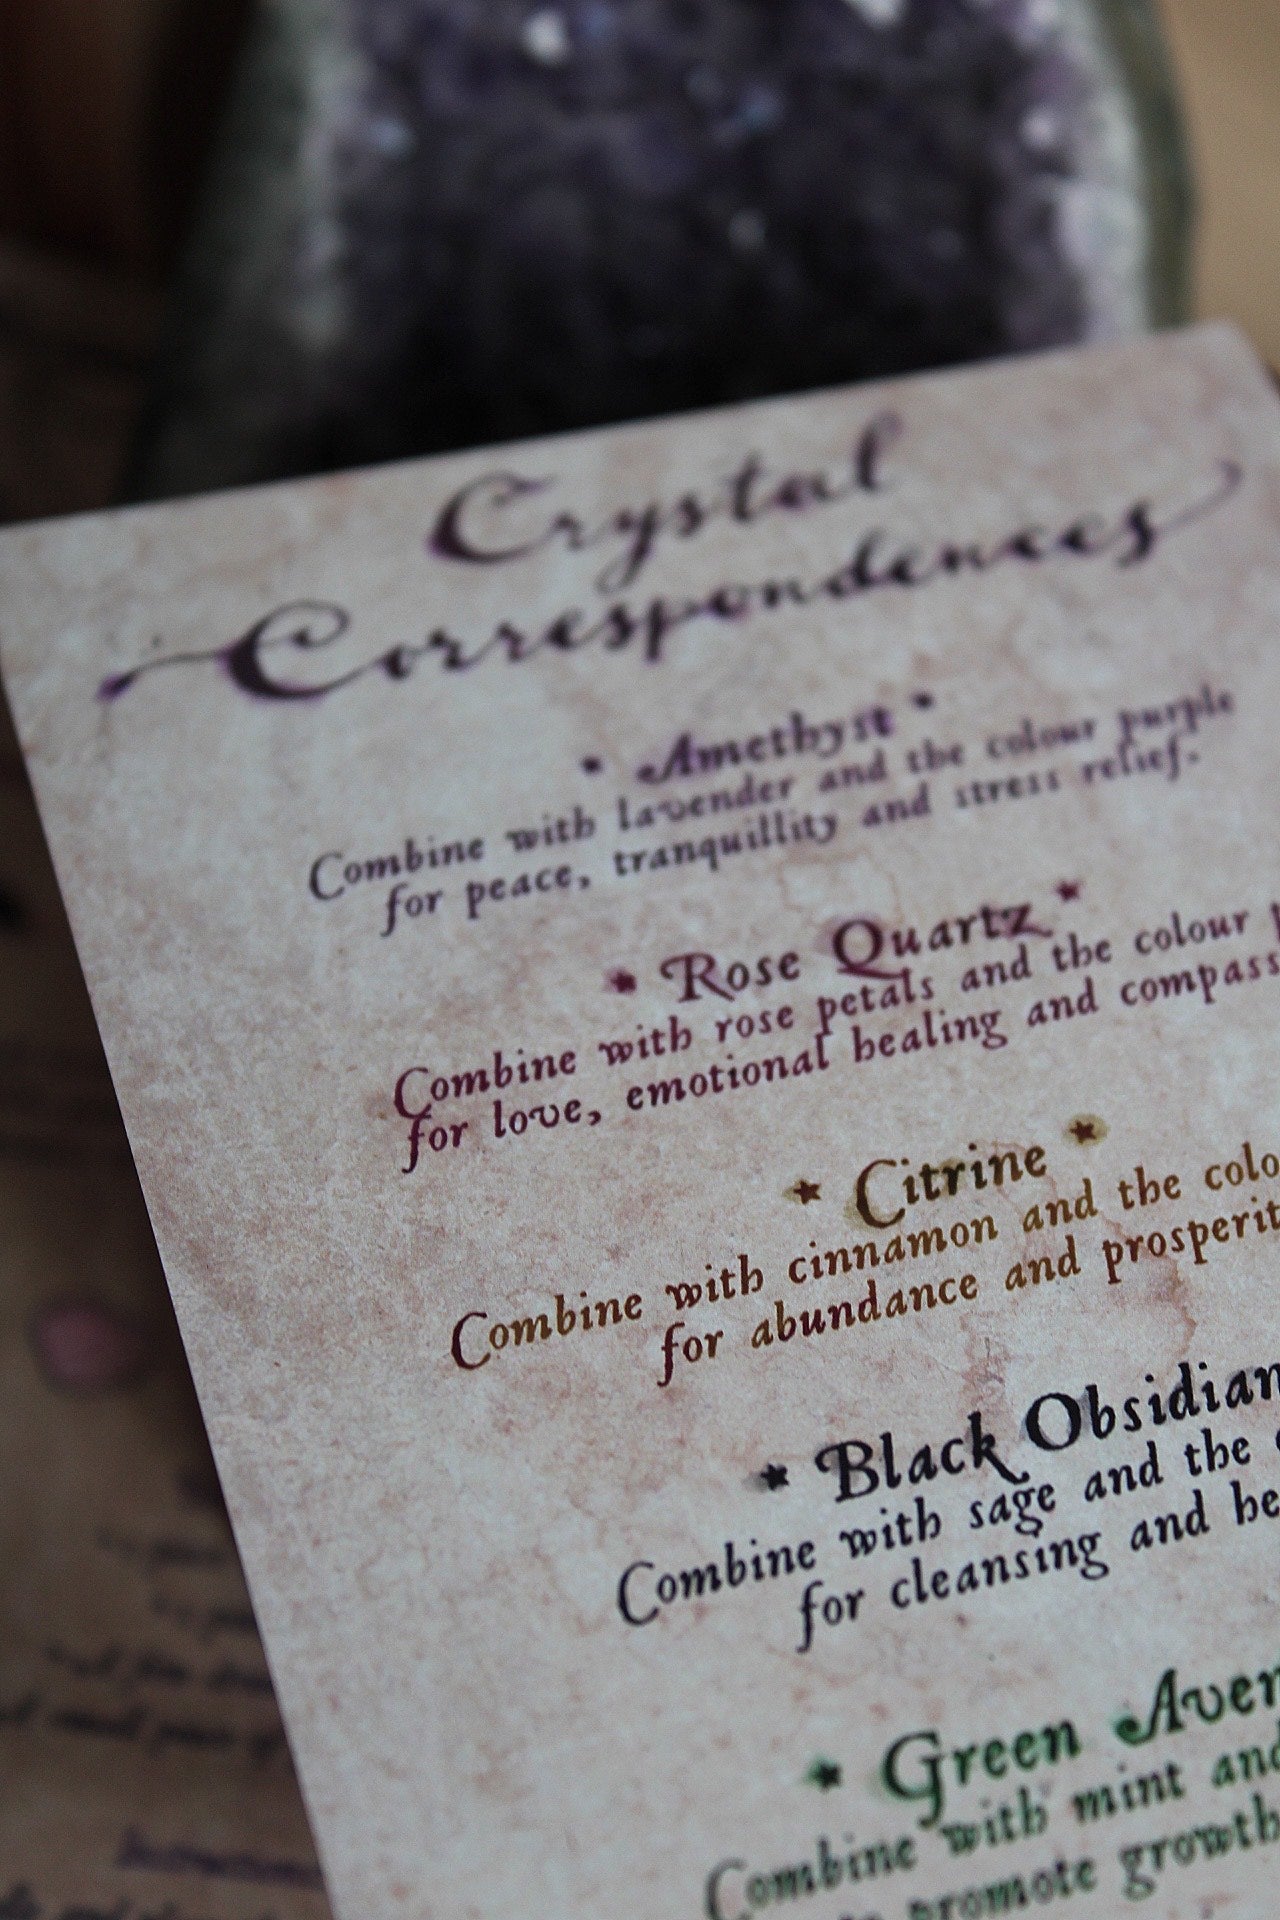 Crystal
Correspondences
* Amethyst *
Combine with lavender and the colour purple
for peace, tranquillity and stress relief.
* Rose Quartz *
Combine with rose petals and the colour
for love, emotional healing and
* Citrine *
Combine with cinnamon and the
for abundance and
* Black Obsidian
Combine with sage and the
for cleansing and
* Green
Combine with mint and
promote growth